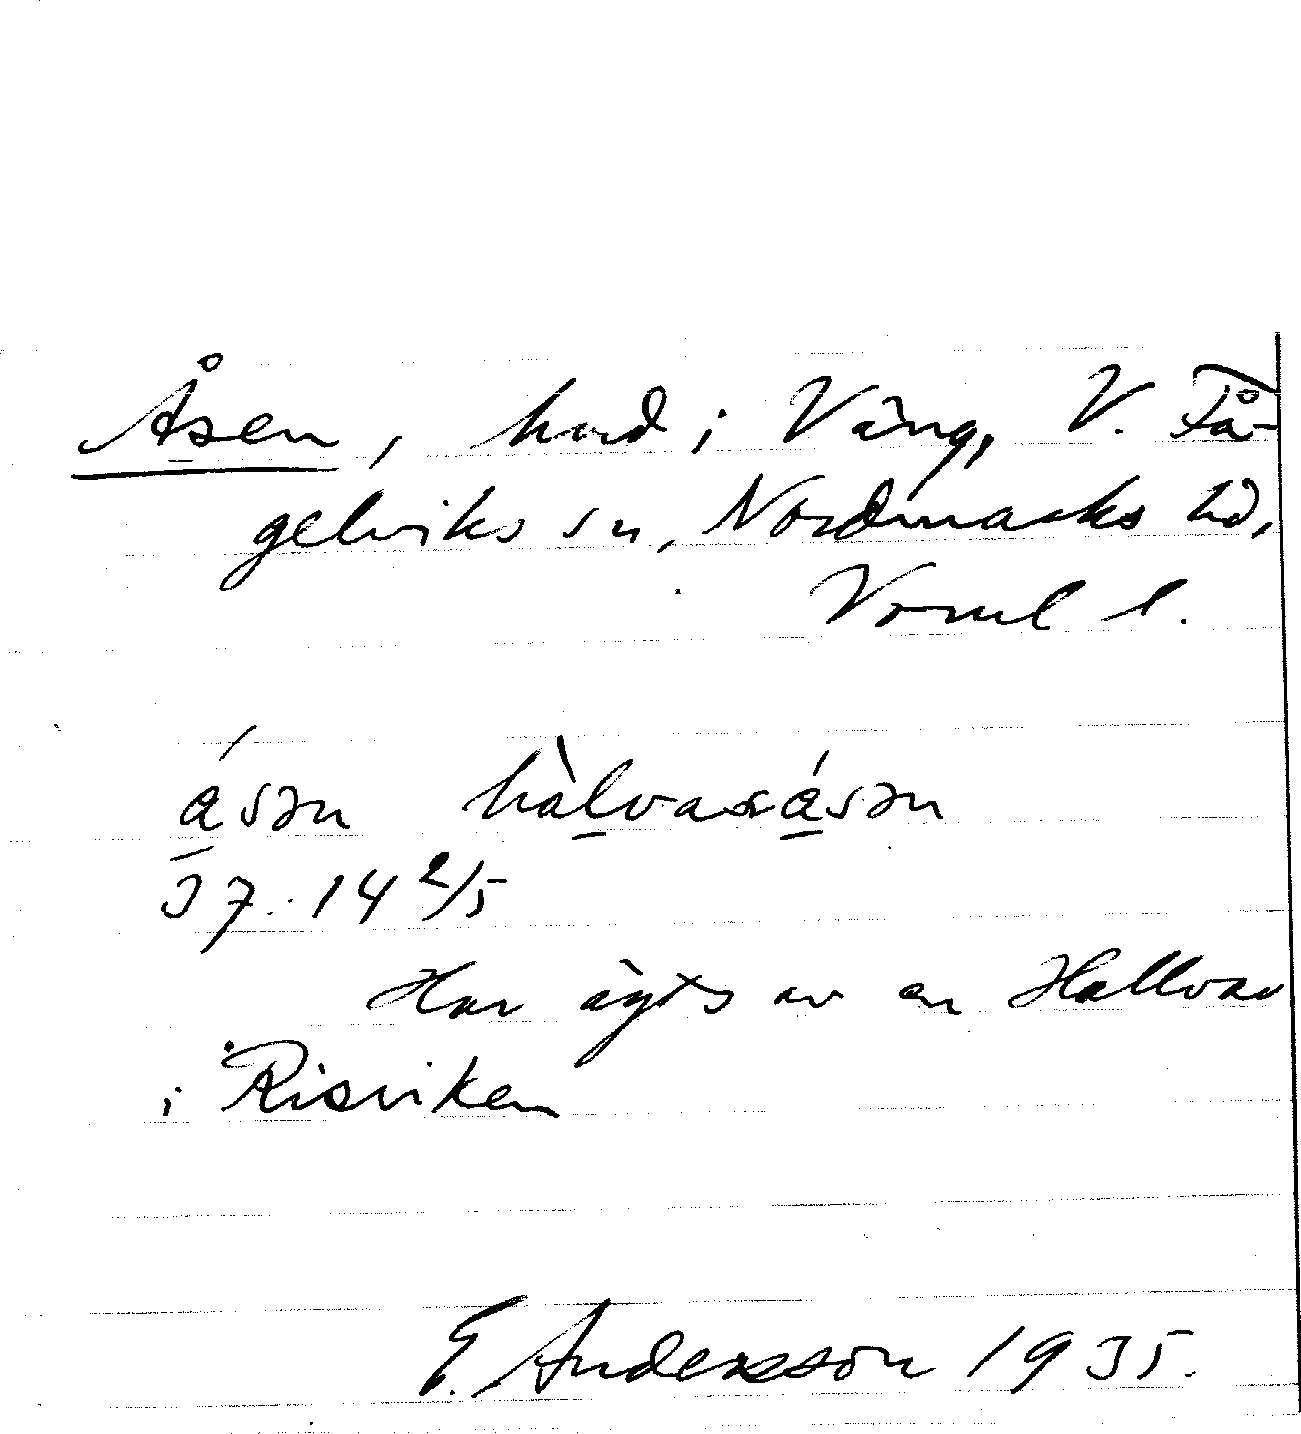 Åsen, hmd i Väng, V. Få-
gelviks sn, Nordmarks hd,
Vrml l.
ǻsən hàlvasåsən
37. 14 2/5
Har ägts av en Hallvar
i Risviken
E. Andersson 1935.